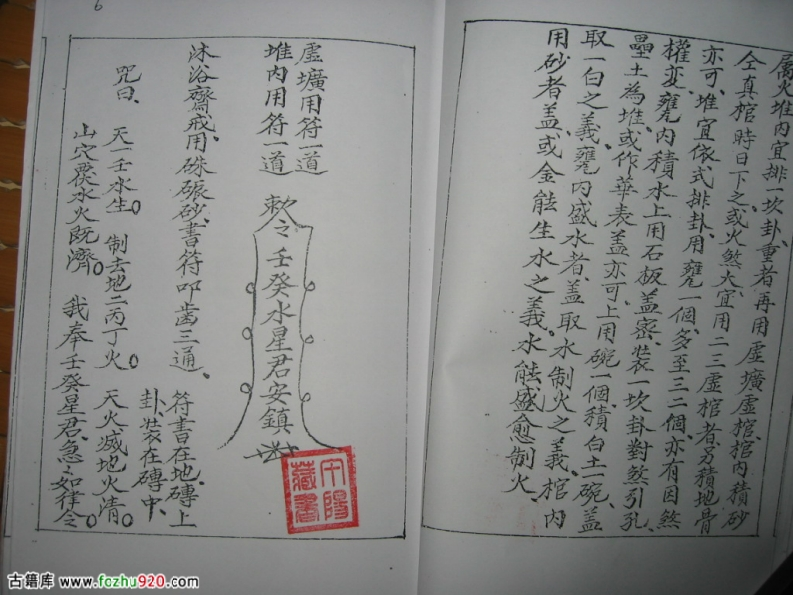 屬火堆內宜排一坎卦、重者再用虛壙虛棺、棺內積砂
仝真棺時日下之、或火煞大、宜用二三虛棺者、另積地骨
亦可、堆宜依式排卦用甕一個、多至三二個、亦有因煞
權变、甕內積水上用石板盖密、裝一坎卦對煞引孔、
壘土為堆、或作華表盖亦可、上用碗一個積白土一碗、盖
取一白之義、甕內盛水者、盖取水制火之義、棺內
用砂者盖、或金能生水之義、水能盛愈制火、
6
虛壙用符一道
堆內用符一道
勅令壬癸水星君安鎮
沐浴齋戒用硃砂書符叩齒三通、
符書在地磚上
卦、裝在磚中、
咒曰、天一壬水生。制去地二丙丁火。天火滅地火清。
山穴要水火既濟。我奉壬癸星君、急々如律令。
藏書
古籍库 www.fozhu920.com